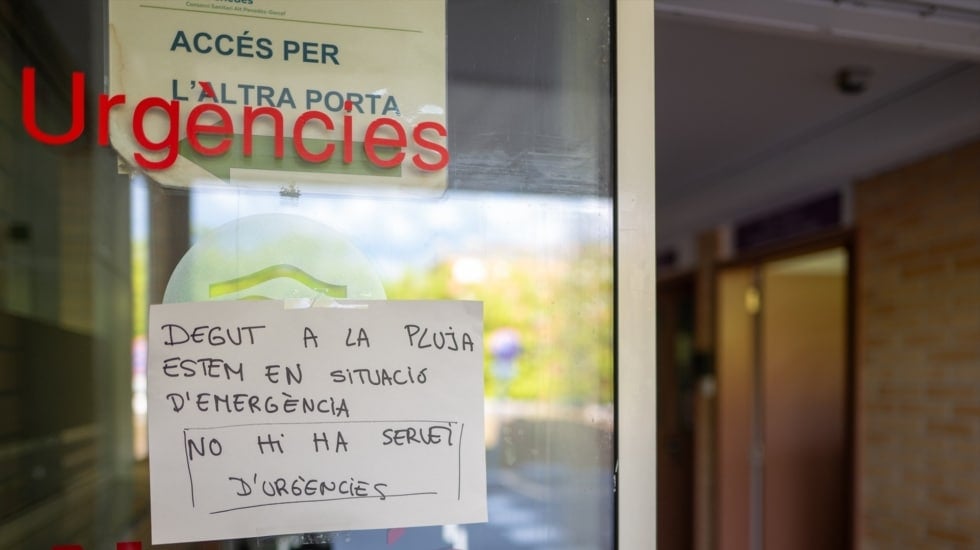 Consorci Sanitari Alt Penedès-Garraf
ACCÉS PER
L'ALTRA PORTA
Urgències
DEGUT A LA PLUJA
ESTEM EN SITUACIÓ
D'EMERGÈNCIA
NO HI HA SERVEI
D'URGÈNCIES